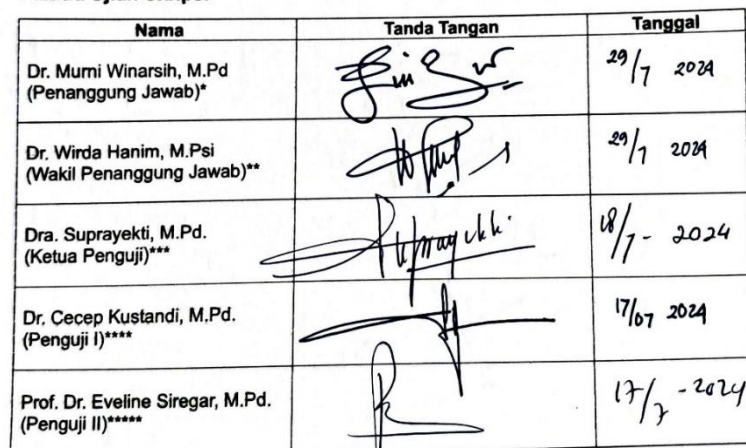 Nama Tanda Tangan Tanggal
Dr. Murni Winarsih, M.Pd
(Penanggung Jawab)*
29/7 2024
Dr. Wirda Hanim, M.Psi
(Wakil Penanggung Jawab)**
29/7 2024
Dra. Suprayekti, M.Pd.
(Ketua Penguji)***
Suprayekti
18/7- 2024
Dr. Cecep Kustandi, M.Pd.
(Penguji I)****
17/07 2024
Prof. Dr. Eveline Siregar, M.Pd.
(Penguji II)*****
17/7 - 2024